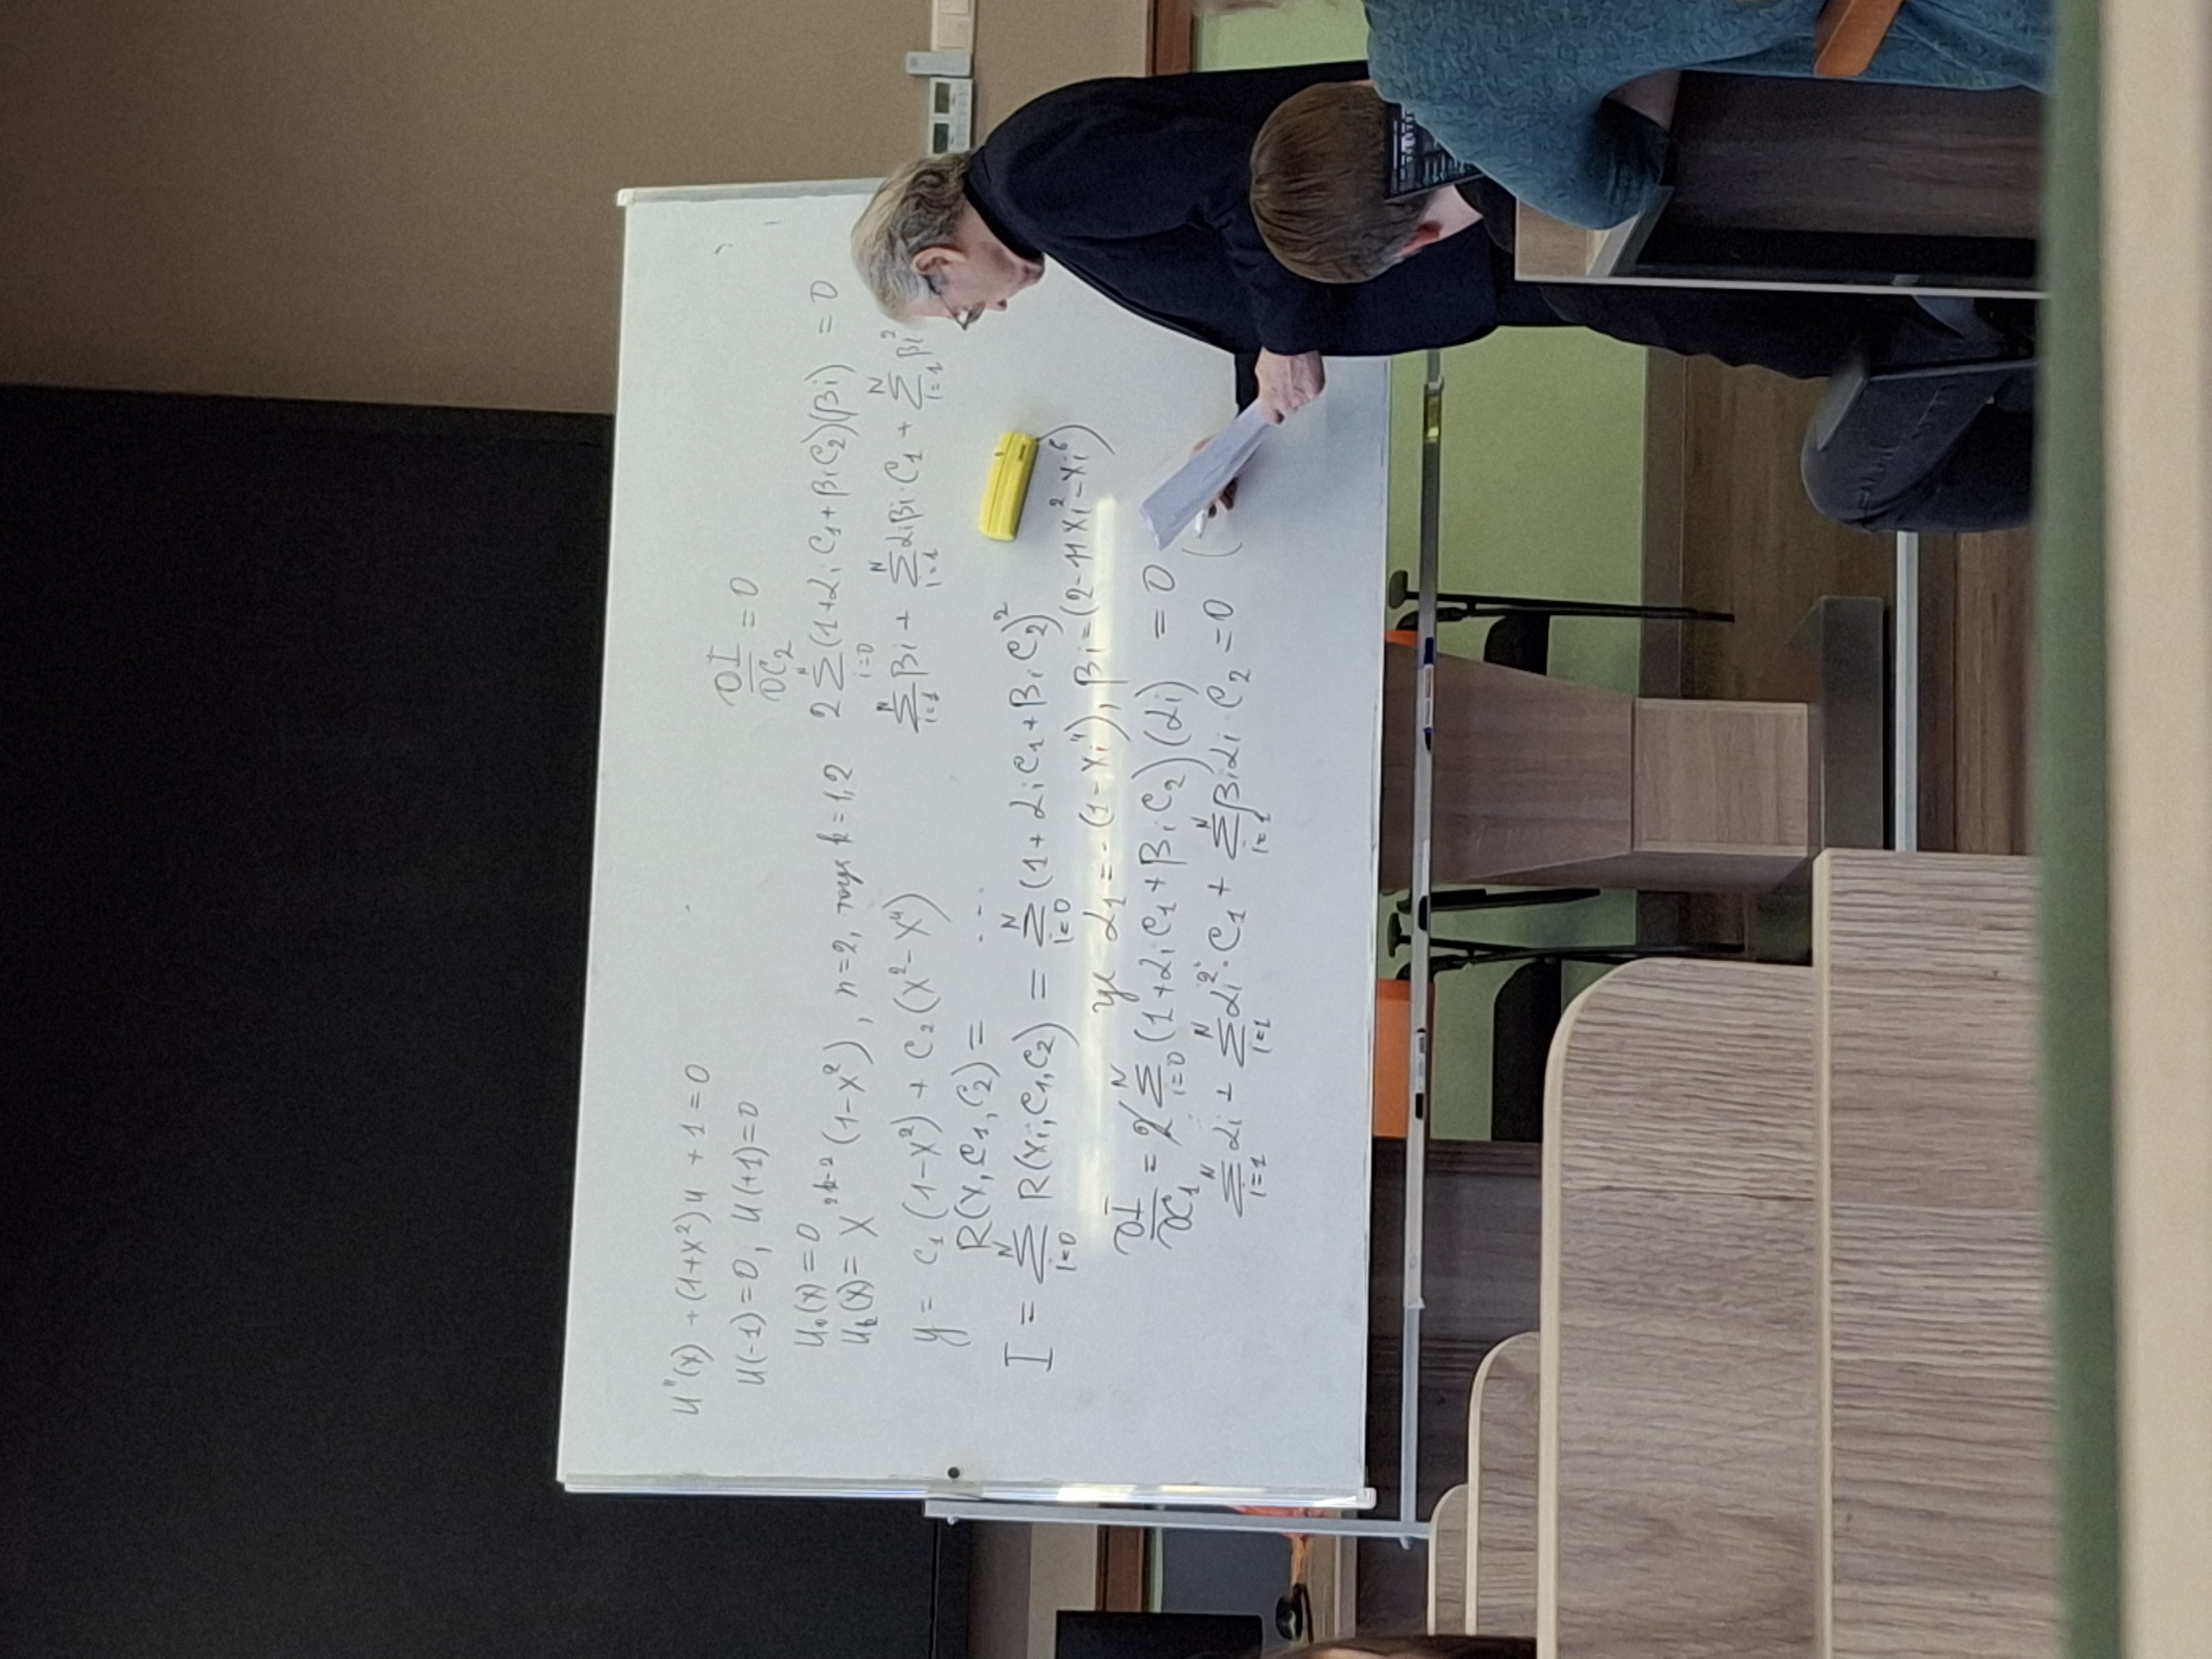 u''(x) + (1+x²)u + 1 = 0
u(-1)=0, u(+1)=0
u₀(x) = 0
uₖ(x) = x²ᵏ⁻² (1-x²), n=2, тогда k=1,2
y = c₁(1-x²) + c₂(x²-x⁴)
R(x, c₁, c₂) = ...
I = ∑ᵢ₌₀ᴺ R(xᵢ, c₁, c₂) = ∑ᵢ₌₀ᴺ (1 + αᵢ c₁ + βᵢ c₂)²
где α₁ = -(1-xᵢ⁴), βᵢ = (2-11xᵢ²-xᵢ⁶)
∂I/∂c₁ = 2 ∑ᵢ₌₀ᴺ (1+αᵢ c₁ + βᵢ c₂)(αᵢ) = 0
∑ᵢ₌₁ᴺ αᵢ + ∑ᵢ₌₁ᴺ αᵢ² · c₁ + ∑ᵢ₌₁ᴺ βᵢαᵢ · c₂ = 0 (
∂I/∂c₂ = 0
2 ∑ᵢ₌₀ᴺ (1+αᵢ c₁ + βᵢ c₂)(βᵢ) = 0
∑ᵢ₌₁ᴺ βᵢ + ∑ᵢ₌₁ᴺ αᵢβᵢ · c₁ + ∑ᵢ₌₁ᴺ βᵢ²